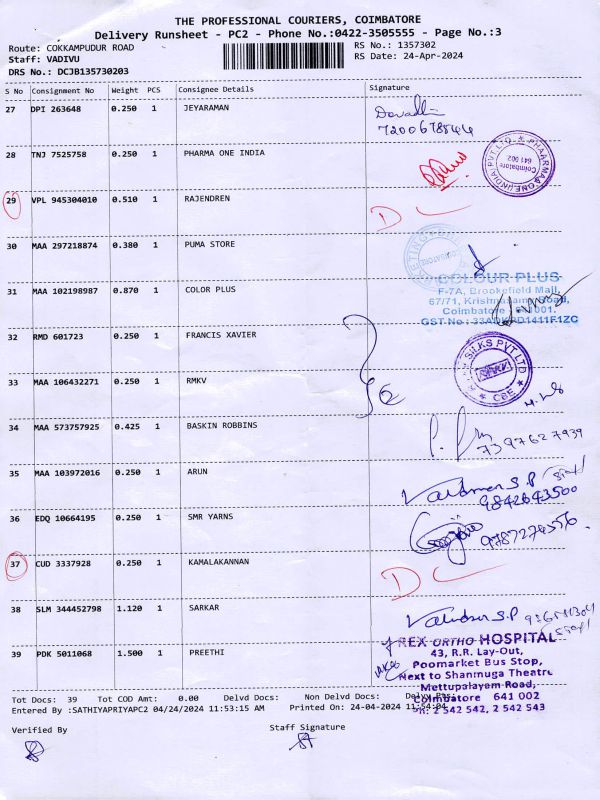 THE PROFESSIONAL COURIERS, COIMBATORE
Delivery Runsheet - PC2 - Phone No.:0422-3505555 - Page No.:3
Route: COKKAMPUDUR ROAD
RS No.: 1357302
Staff: VADIVU
RS Date: 24-Apr-2024
DRS No.: DCJB135730203
S No Consignment No Weight PCS Consignee Details Signature
27 DPI 263648 0.250 1 JEYARAMAN
28 TNJ 7525758 0.250 1 PHARMA ONE INDIA
PHAARMA ONE (INDIA) PVT LTD
Coimbatore
641 002
29 VPL 945304010 0.510 1 RAJENDREN
D
30 MAA 297218874 0.380 1 PUMA STORE
31 MAA 102198987 0.870 1 COLOR PLUS
COLOUR PLUS
F-7A, Brookefield Mall,
67/71, Krishnasamy Road,
Coimbatore
GST No
32 RMD 601723 0.250 1 FRANCIS XAVIER
33 MAA 106432271 0.250 1 RMKV
SILKS PVT LTD
CBE
34 MAA 573757925 0.425 1 BASKIN ROBBINS
7397627939
35 MAA 103972016 0.250 1 ARUN
9842643500
36 EDQ 10664195 0.250 1 SMR YARNS
37 CUD 3337928 0.250 1 KAMALAKANNAN
D
38 SLM 344452798 1.120 1 SARKAR
39 PDK 5011068 1.500 1 PREETHI
REX ORTHO HOSPITAL
43, R.R. Lay-Out,
Poomarket Bus Stop,
Next to Shanmuga Theatre
Mettupalayam Road,
Coimbatore 641 002
Ph: 2 542 542, 2 542 543
Tot Docs: 39 Tot COD Amt: 0.00 Delvd Docs: Non Delvd Docs:
Entered By :SATHIYAPRIYAPC2 04/24/2024 11:53:15 AM Printed On: 24-04-2024 11:54:04
Verified By
Staff Signature